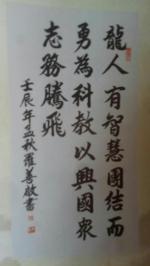 龍人有智慧團结而
勇為科教以興國眾
志務騰飛
壬辰年孟秋羅善啟書